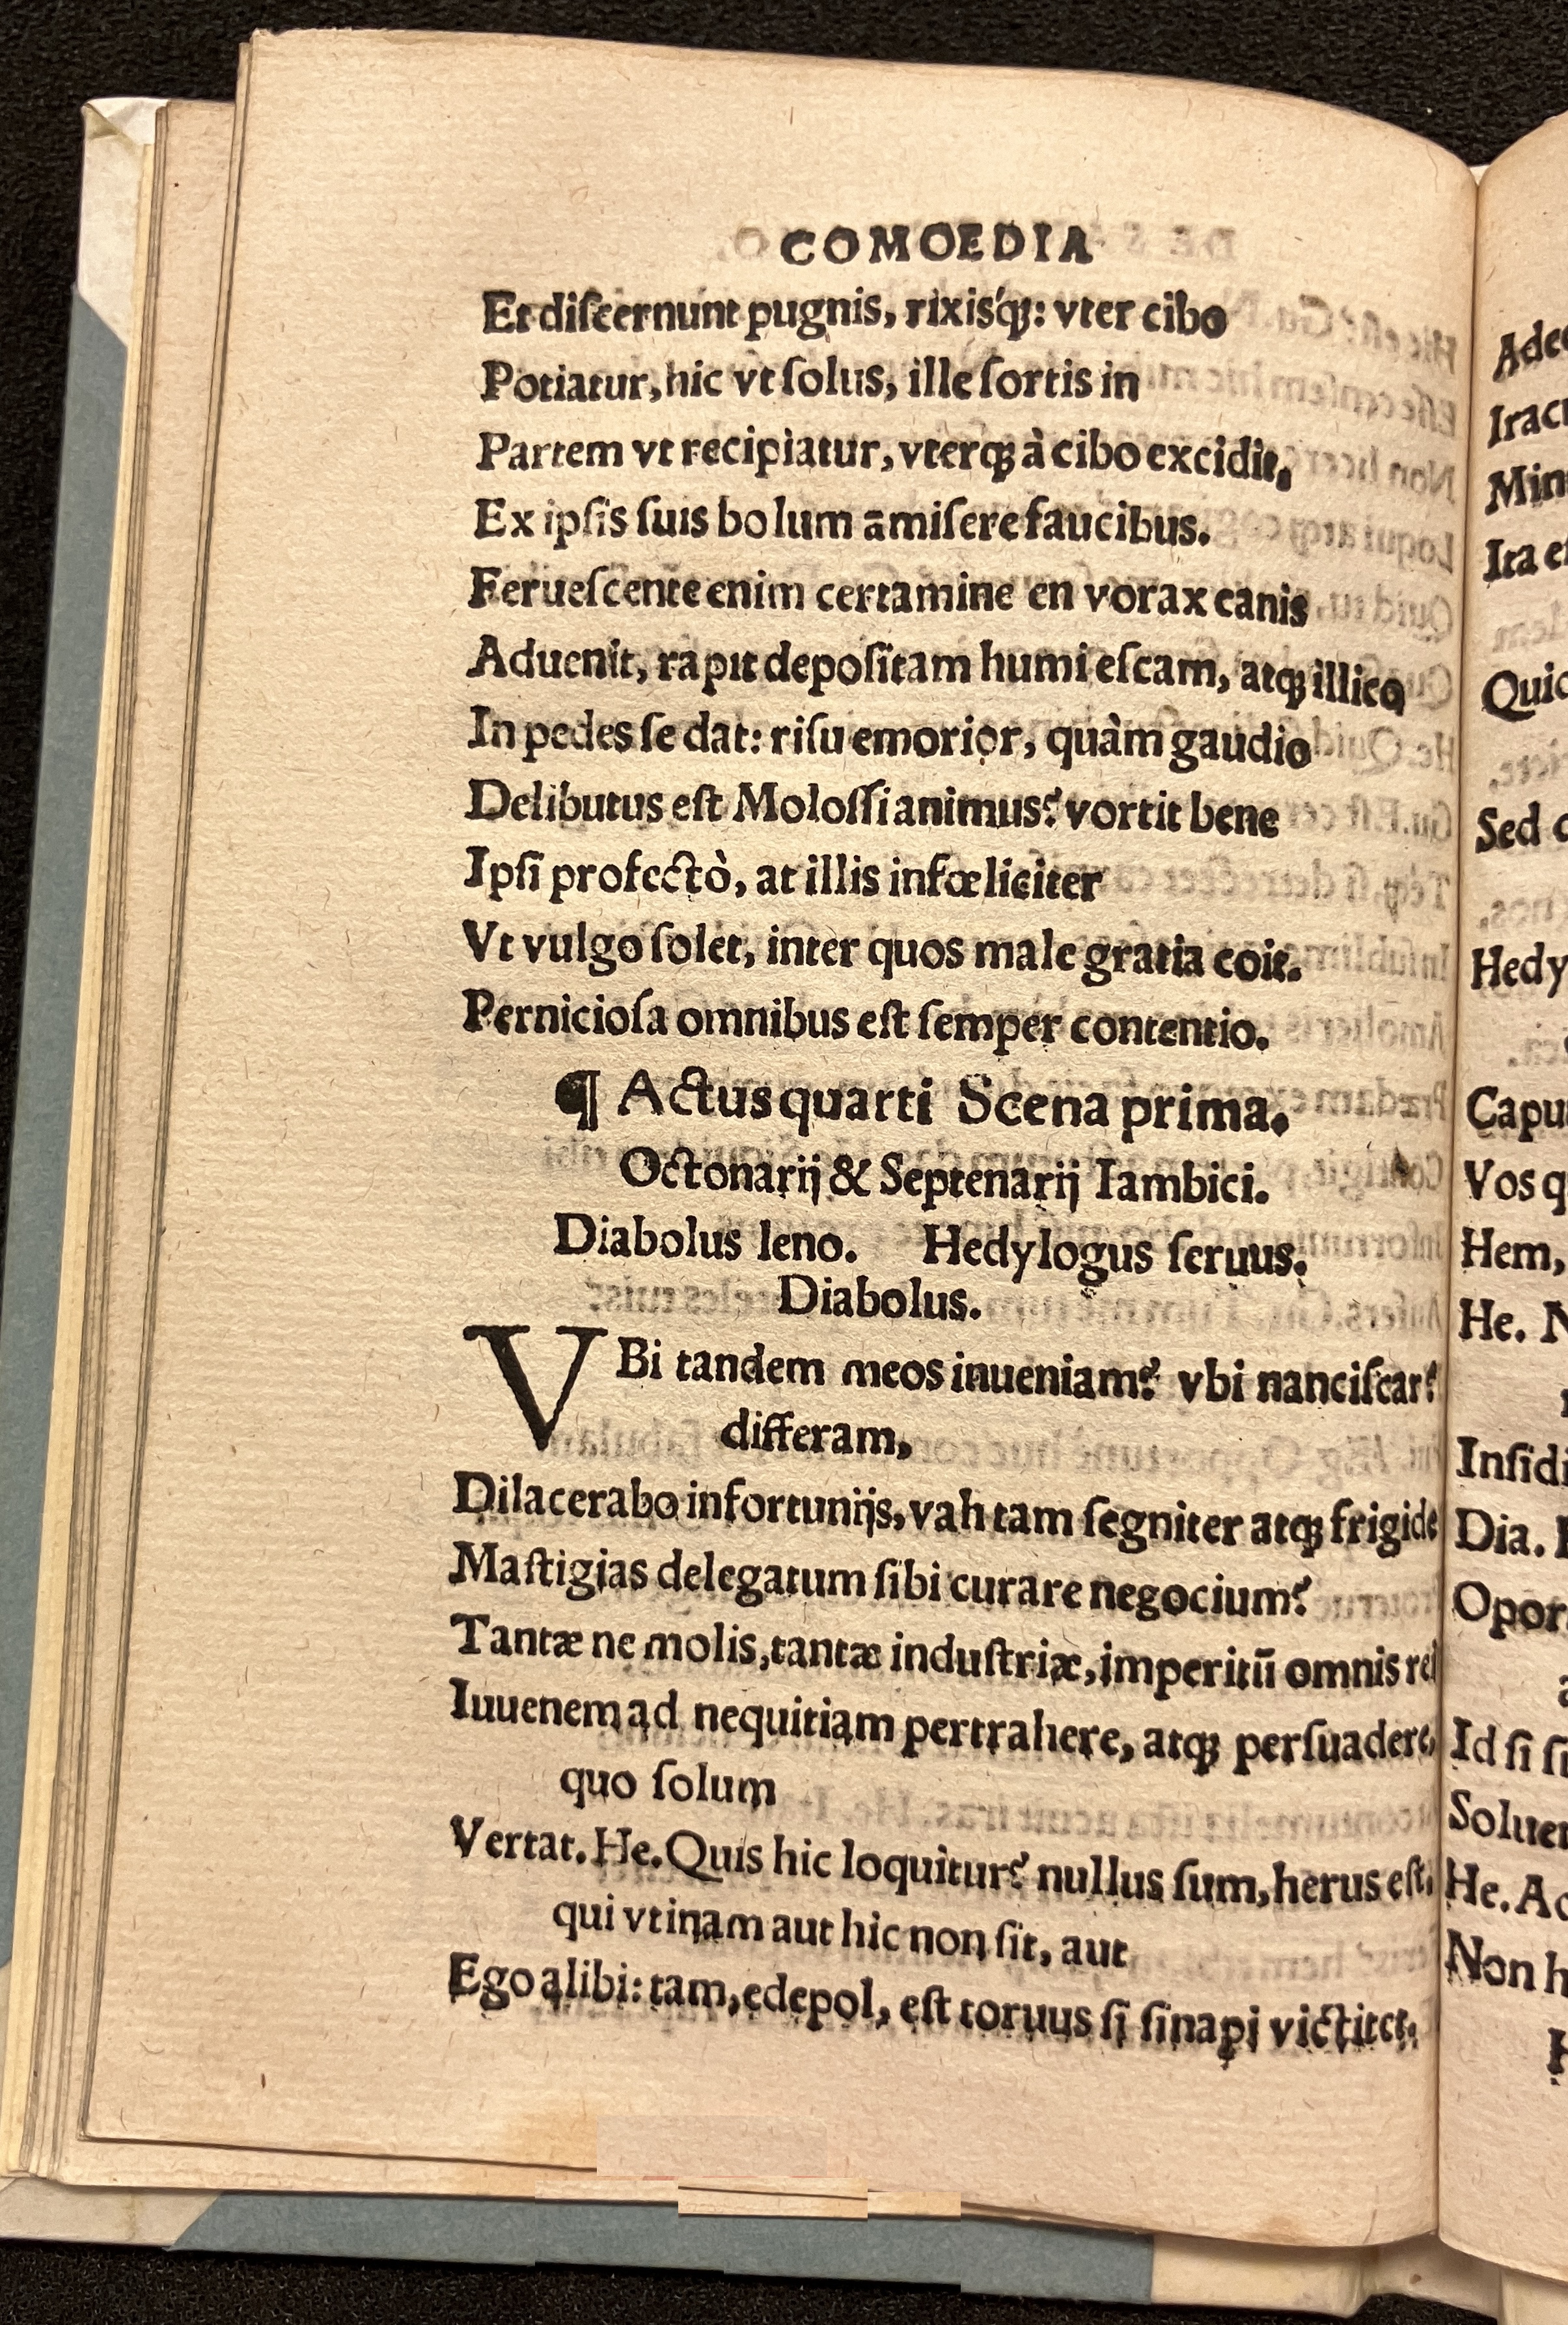 COMOEDIA
Et diſcernunt pugnis, rixisq́ꝫ: vter cibo
Potiatur, hic vt ſolus, ille ſortis in
Partem vt recipiatur, vterqꝫ à cibo excidit,
Ex ipſis ſuis bolum āmiſere faucibus.
Ferueſcente enim certamine en vorax canis
Aduenit, rapit depoſitam humi eſcam, atqꝫ illico
In pedes ſe dat: riſu emorior, quàm gaudio
Delibutus eſt Moloſſi animus? vortit bene
Ipſi profectò, at illis infœliciter
Vt vulgo ſolet, inter quos male gratia coit.
Pernicioſa omnibus eſt ſemper contentio.
¶ Actus quarti Scena prima.
Octonarij & Septenarij Iambici.
Diabolus leno. Hedylogus ſeruus.
Diabolus.
VBi tandem meos inueniam? vbi nanciſcar?
differam,
Dilacerabo infortunijs, vah tam ſegniter atqꝫ frigide
Maſtigias delegatum ſibi curare negocium?
Tantæ ne molis, tantæ induſtriæ, imperitū omnis rei
Iuuenem ad nequitiam pertrahere, atqꝫ perſuadere,
quo ſolum
Vertat. He. Quis hic loquitur? nullus ſum, herus eſt,
qui vtinam aut hic non ſit, aut
Ego alibi: tam, edepol, eſt toruus ſi ſinapi victitet,
Iracu
Min
Ita eſ
Quic
Sed
Hedy
Capu
Vos q
Hem,
He. N
Inſidi
Dia.
Opor
Id ſi ſi
Soluer
He. Ac
Non h